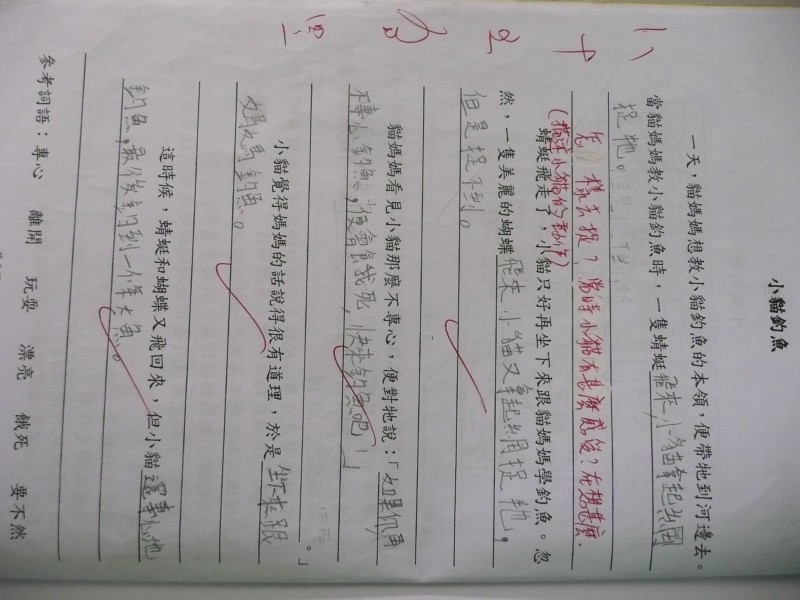 小貓釣魚
一天，貓媽媽想教小貓釣魚的本領，便帶牠到河邊去。
當貓媽媽教小貓釣魚時，一隻蜻蜓飛來，小貓拿起魚網
捉牠。
怎樣去捉？當時小貓有甚麼感受？在想甚麼？
(描述小貓的動作)
蜻蜓飛走了，小貓只好再坐下來跟貓媽媽學釣魚。忽
然，一隻美麗的蝴蝶飛來，小貓又拿起網捉牠，
但是捉不到。
貓媽媽看見小貓那麼不專心，便對牠說：「如果你再
不專心釣魚，便會餓死，快來釣魚吧！」
。」
小貓覺得媽媽的話說得很有道理，於是坐下來跟
媽媽釣魚。
這時候，蜻蜓和蝴蝶又飛回來，但小貓還專心地
釣魚，最後釣到一條大魚。
參考詞語：專心 離開 玩耍 漂亮 餓死 要不然